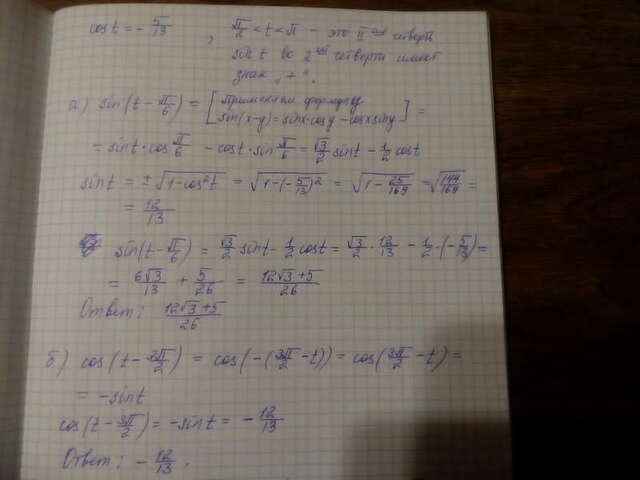 cos t = - 5/13 , π/2 < t < π - это II ой четверть
sin t во 2ой четверти имеет
знак „+“.
а) sin(t - π/6) = [применяем формулу
sin(x-y) = sinx·cosy - cosx siny] =
= sin t · cos π/6 - cos t · sin π/6 = √3/2 sin t - 1/2 cos t
sin t = ± √(1 - cos² t) = √(1 - (-5/13)²) = √(1 - 25/169) = √(144/169) =
= 12/13
sin(t - π/6) = √3/2 sin t - 1/2 cos t = √3/2 · 12/13 - 1/2 · (-5/13) =
= 6√3/13 + 5/26 = (12√3+5)/26
Ответ: (12√3+5)/26
б) cos(t - 3π/2) = cos(-(3π/2 - t)) = cos(3π/2 - t) =
= - sin t
cos(t - 3π/2) = - sin t = - 12/13
Ответ: - 12/13.